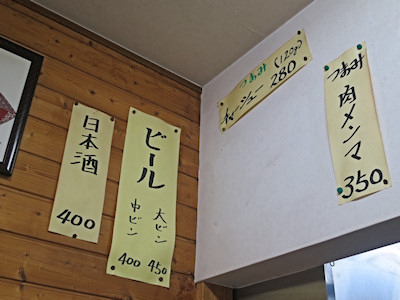 日本酒
400
ビール
大ビン 450
中ビン 400
つまみ (120g)
チャーシュー 280
つまみ
肉メンマ
350.